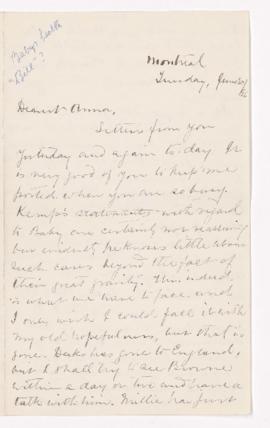 Baby's health
"Bell"?
Montreal
Tuesday, June
Dearest Anna,
Letters from you
yesterday and again to-day. It
is very good of you to keep me
posted when you are so busy.
Kemp's statements with regard
to Baby are certainly not reassuring
but evidently he knows little about
such cases beyond the fact of
their great gravity. This indeed
is what we have to face and
I only wish I could face it with
my old hopefulness, but that is
gone. has gone to England,
but I shall try to see Browne
within a day or two and have a
talk with him. Millie has just